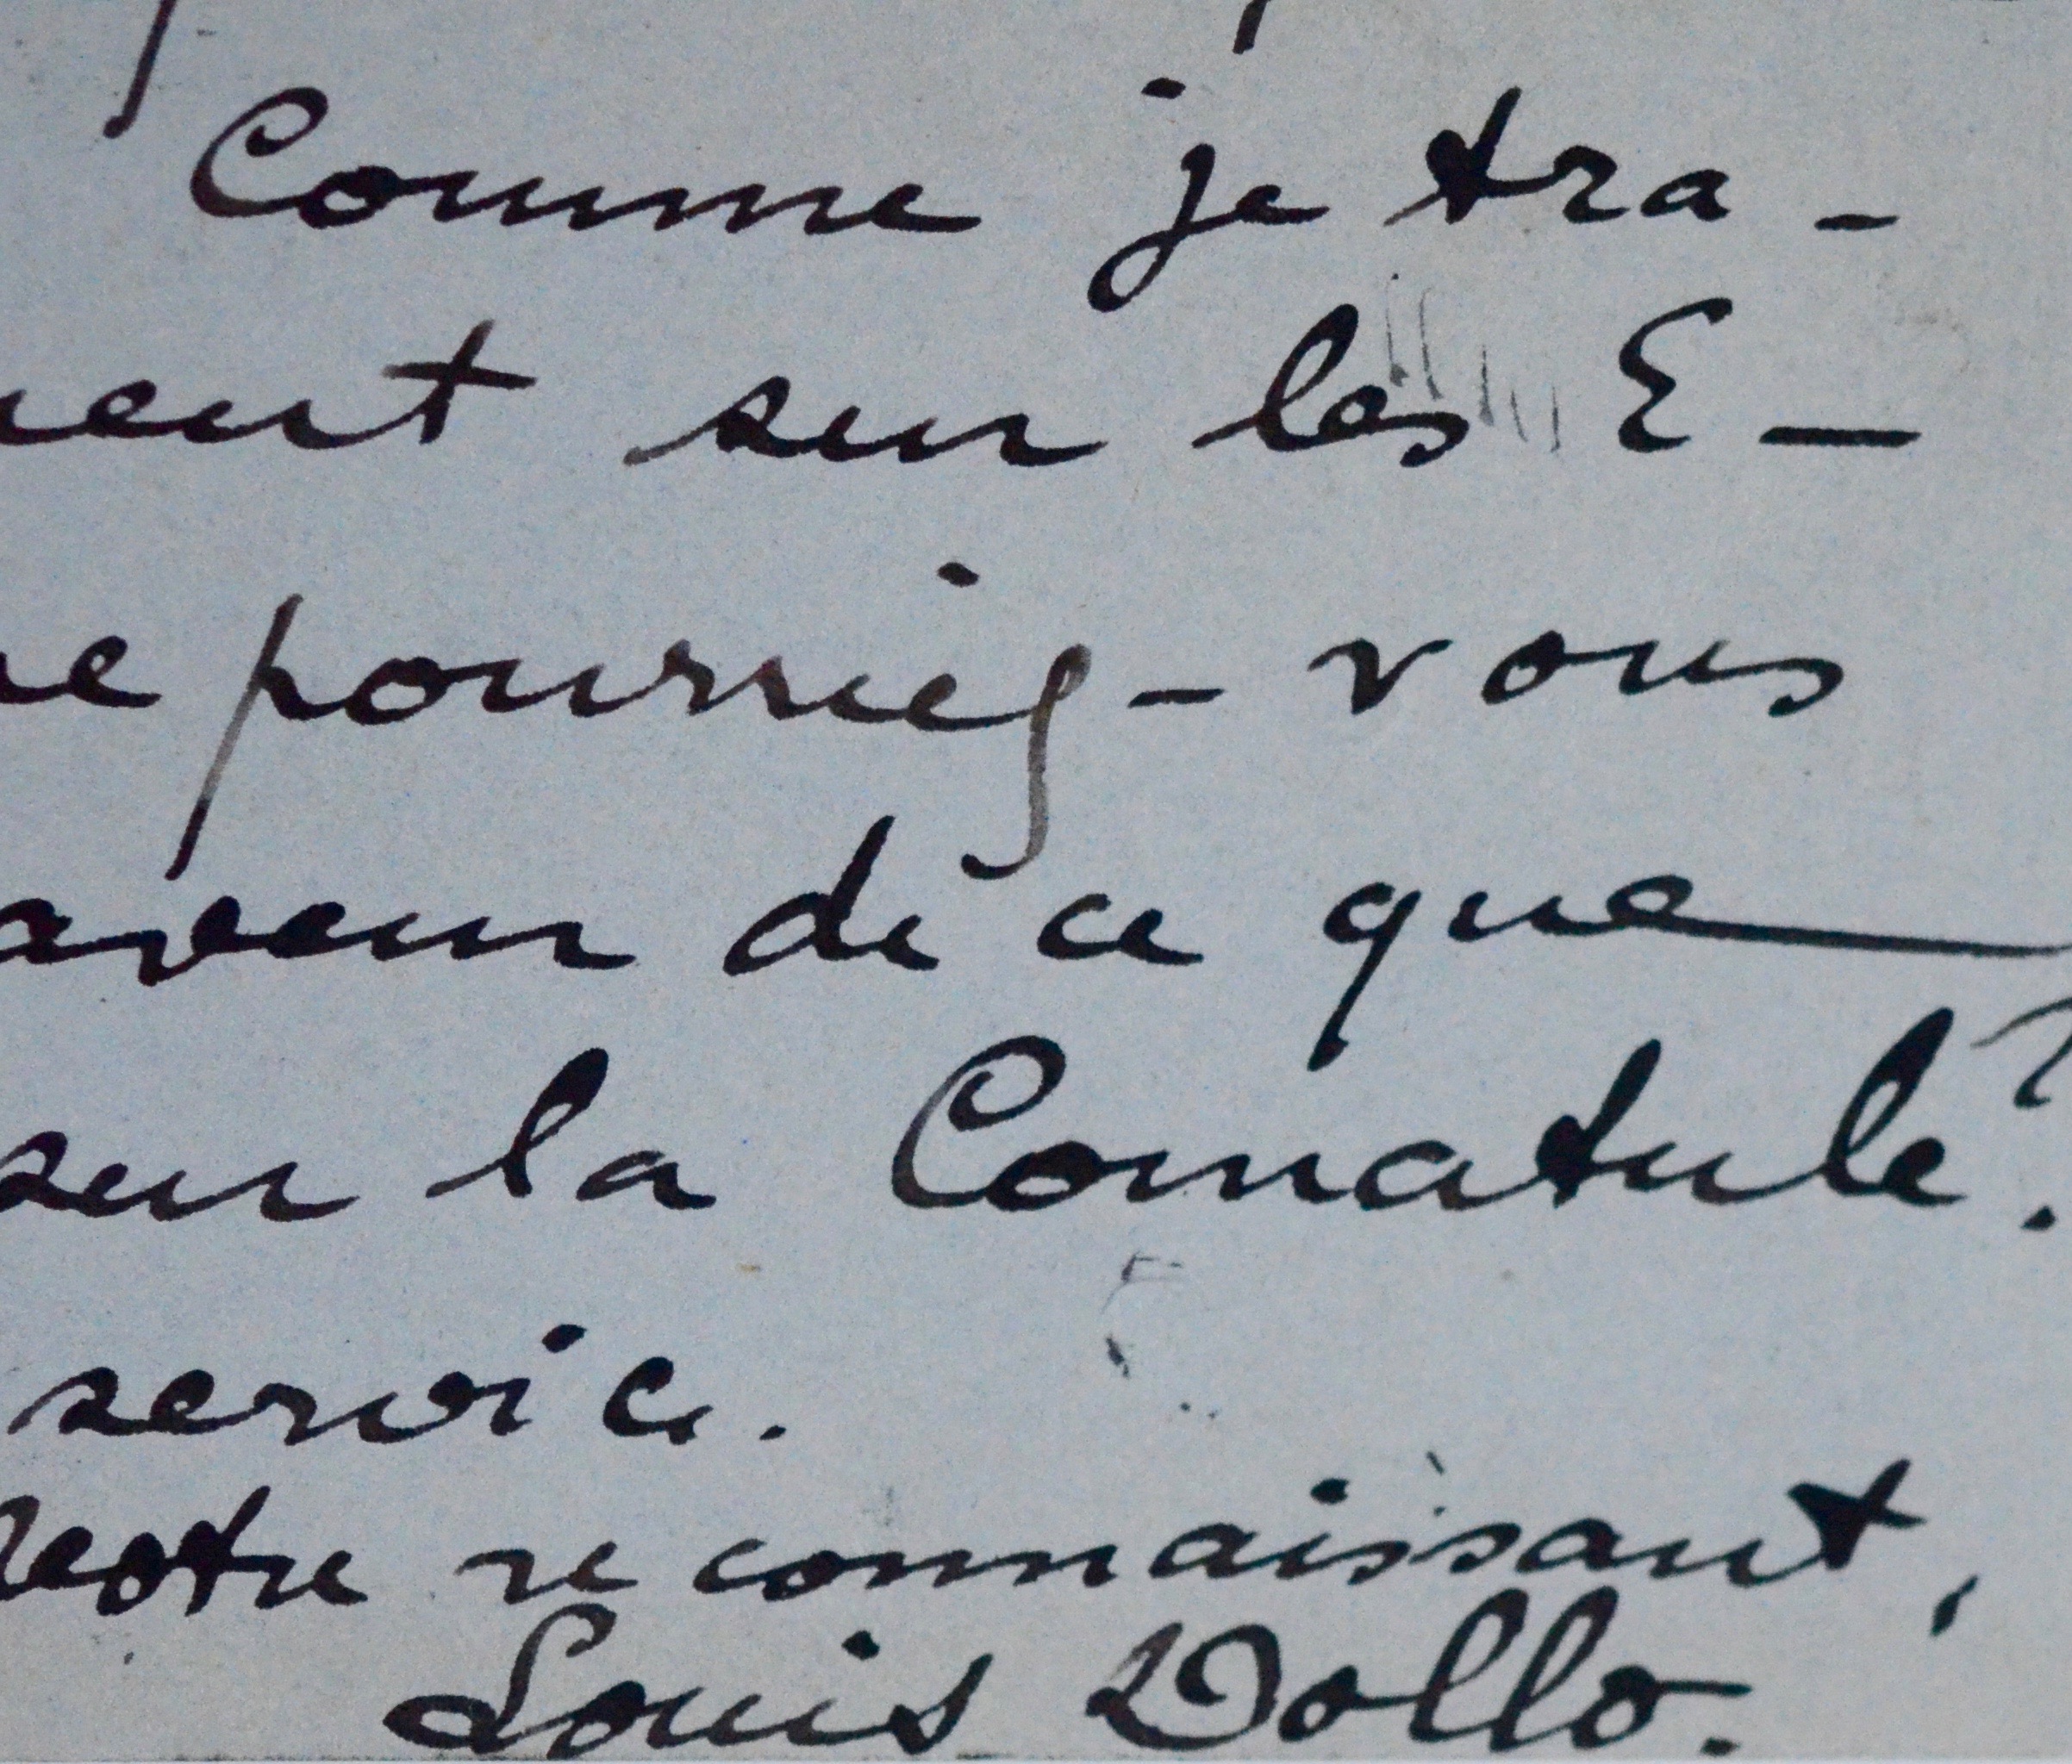 Comme je tra-
ment sur les E-
pourriez-vous
faveur de ce que
sur la Comatule?
service.
Votre reconnaissant,
Louis Dollo.